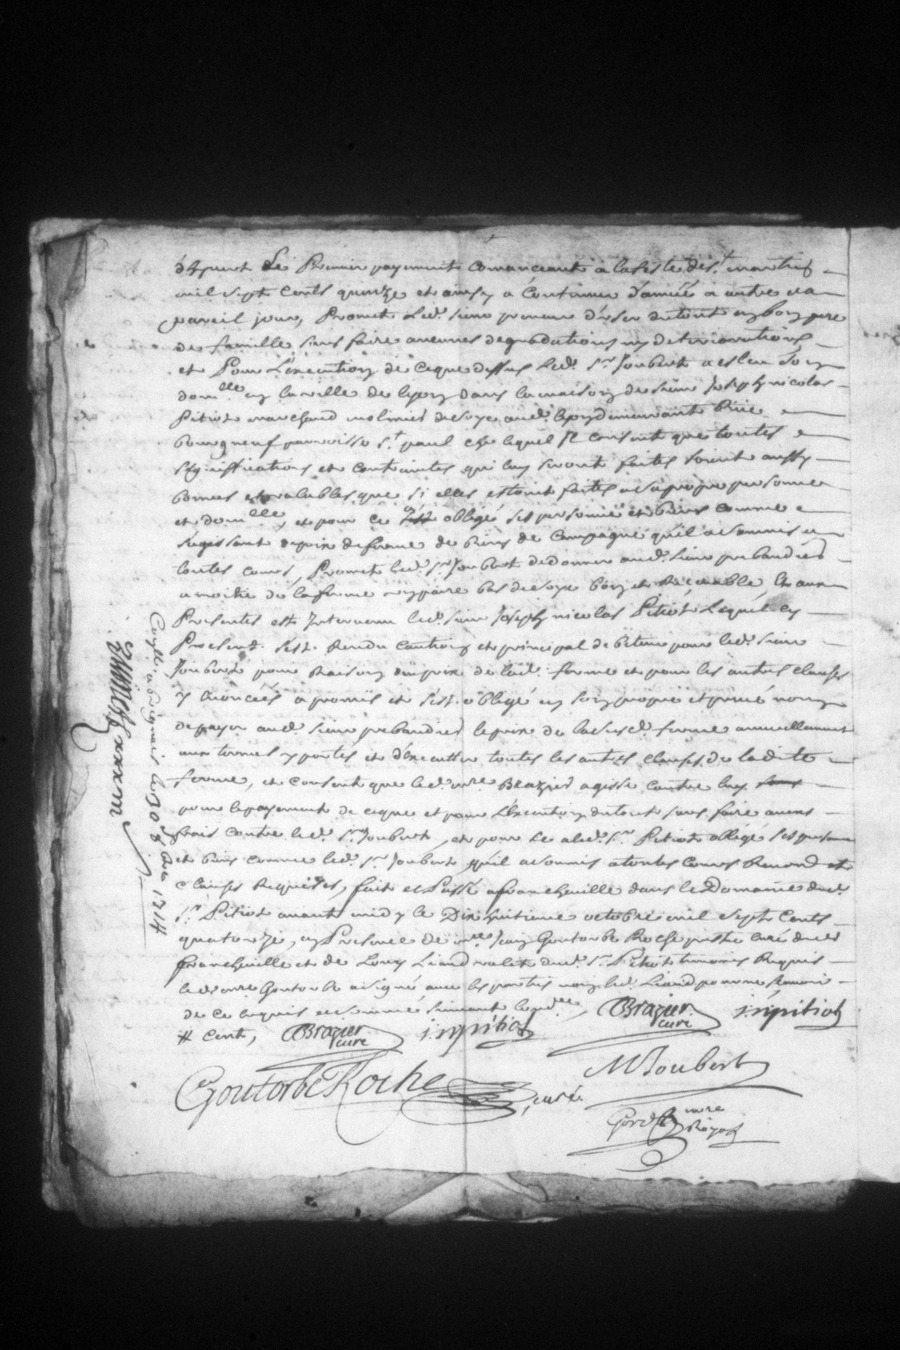 départ Le Premier payement comanceant à la feste de st martin
mil sept cents quinze et ainsy a Continuer d'année a autre a
pareil jour, Promet Led. sieur preneur d'user du tout en bon pere
de famille sans faire aucunes degradations ny deteriorations
et Pour L'execution de ceque dessus Led. sr Joubert a esleu son
domlle en la ville de Lyon dans la maison de sieur Joseph nicolas
Pitiot marchand molinier de soye aud. Lyon demeurant Rue
bourgneuf parroisse st paul chez lequel Il consent que toutes
significations et contraintes qui luy seront faites soient aussy
bonnes et valables que si elles estoient faites a sa propre personne
et domlle, et pour ce a obligé ses personne et biens comme
s'agissant de prix de ferme de biens de Campagne qu'il a soumis a
toutes cours, Promet led. sr Joubert de donner aud. sieur prebandier
a moitié de la ferme une paire bas de soye bon et Recevable Et aux
Presentes est Intervenu led. sieur Joseph nicolas Pitiot Lequel en
Present. s'est Rendu Caution et principal debiteur pour led. sieur
Joubert pour Raison du prix de lad. ferme et pour les autres clauses
y Enoncées a promis et s'est obligé en son propre et privé nom
de payer aud. sieur prebandier le prix de la susd. ferme annuellement
aux termes y portés et d'executer toutes les autres clauses de la dite
ferme, et consent que led. mre Brazier agisse contre luy
pour le payement de ceque et pour L'execution du tout sans faire aucuns
frais contre led. sr Joubert, et pour Le led. sr Pitiot obligé ses personne
et biens comme led. sr Joubert qu'il a soumis a toutes Cours Renond et
clauses Requises, fait et Passé a francheuille dans le Domaine dud.
sr Pitiot avant midy le Dix huitieme octobre mil sept cents
quatorze, en Presence de mre Jean Goutorbe Roche prestre curé dud.
francheuille et de Louis Liaud valet dud. sr Pitiot temoins Requis
led. mre Goutorbe a signé avec les parties non led. Liaud pour ne scavoir
de ce enquis et sommé suivant lord.ce Brazier curé j.n pitiot
# cent, Brazier curé j.n pitiot
M Joubert
Goutorbe Roche, curé
nre Royal
Conllé a le 30 8bre 1714